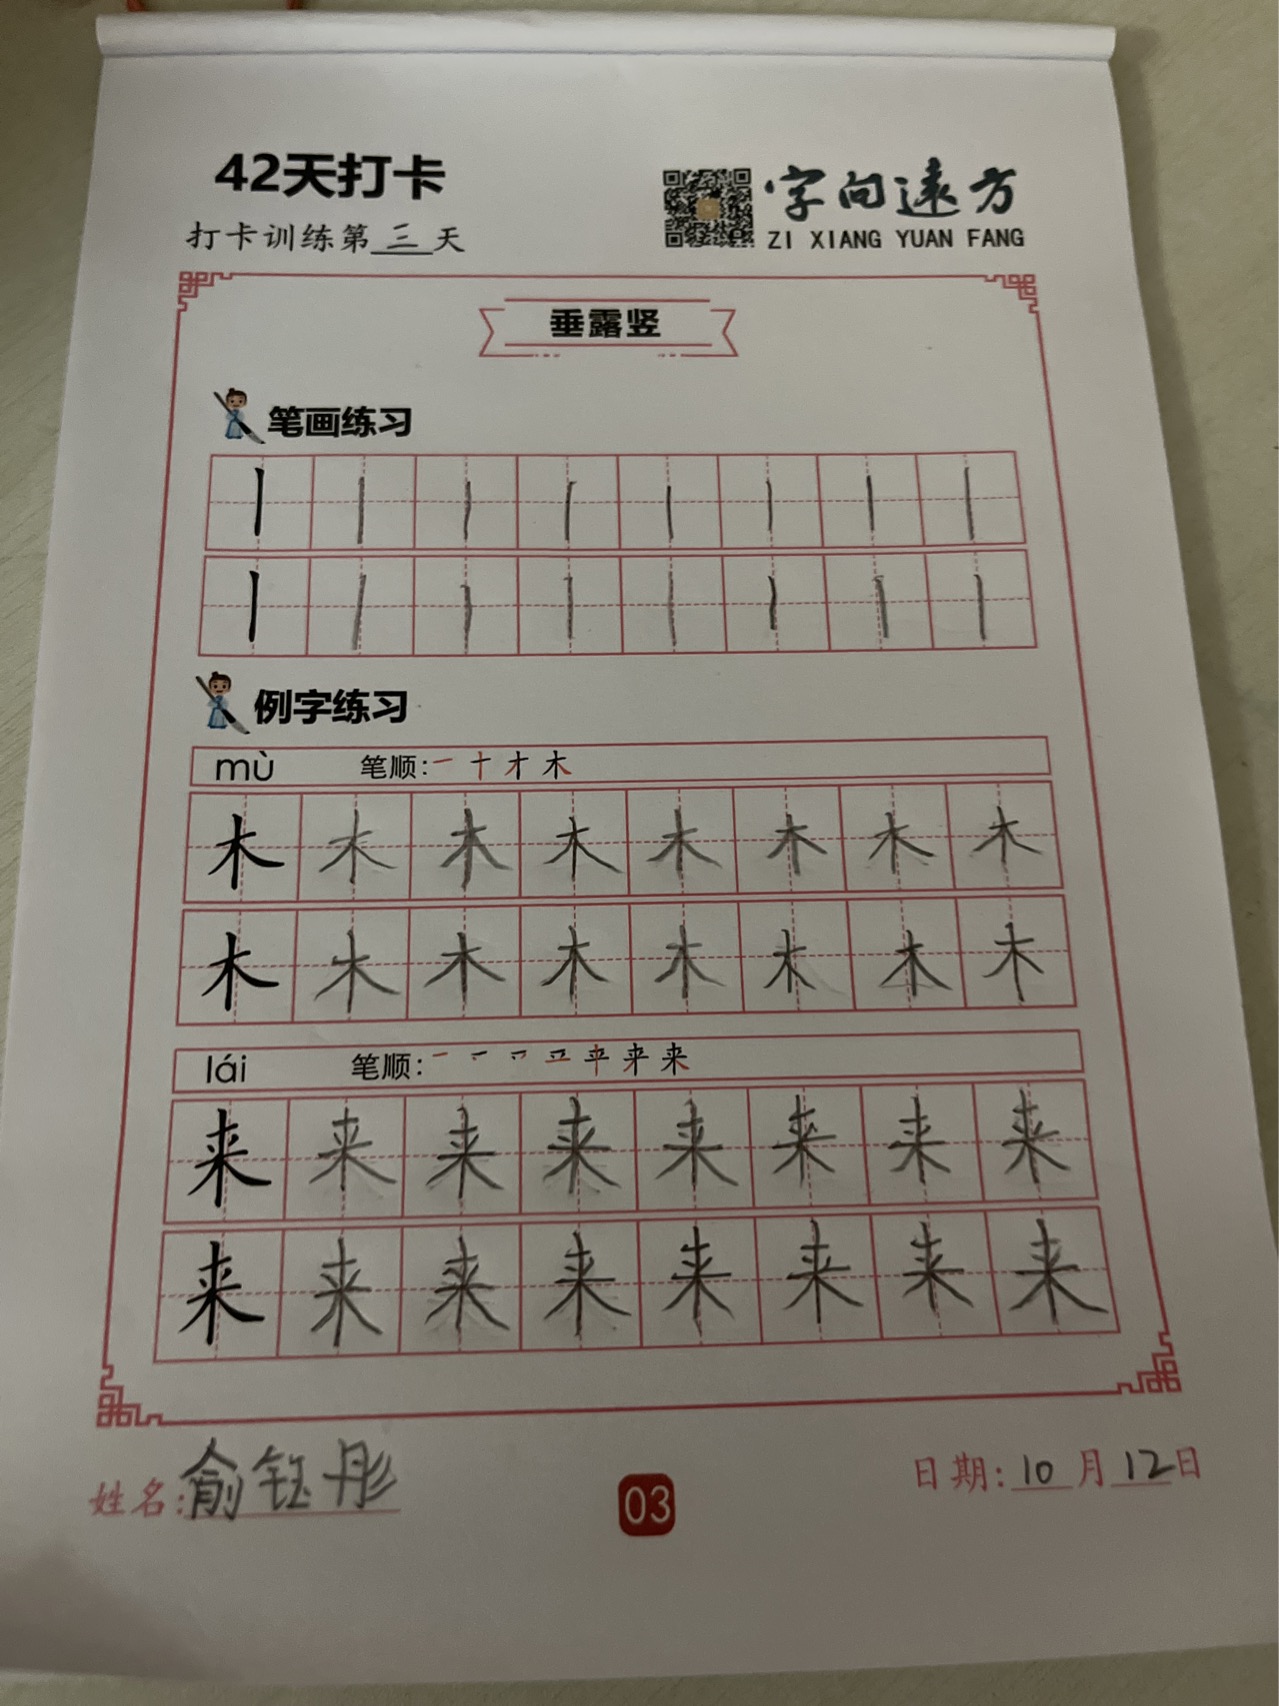 42天打卡
打卡训练第三天
字向遠方
ZI XIANG YUAN FANG
垂露竖
笔画练习
丨 丨 丨 丨 丨 丨 丨 丨
丨 丨 丨 丨 丨 丨 丨 丨
例字练习
mù 笔顺: 一 十 才 木
木 木 木 木 木 木 木 木
木 木 木 木 木 木 木 木
lái 笔顺:
来 来 来 来 来 来 来 来
来 来 来 来 来 来 来 来
姓名:俞钰彤
03
日期:10月12日